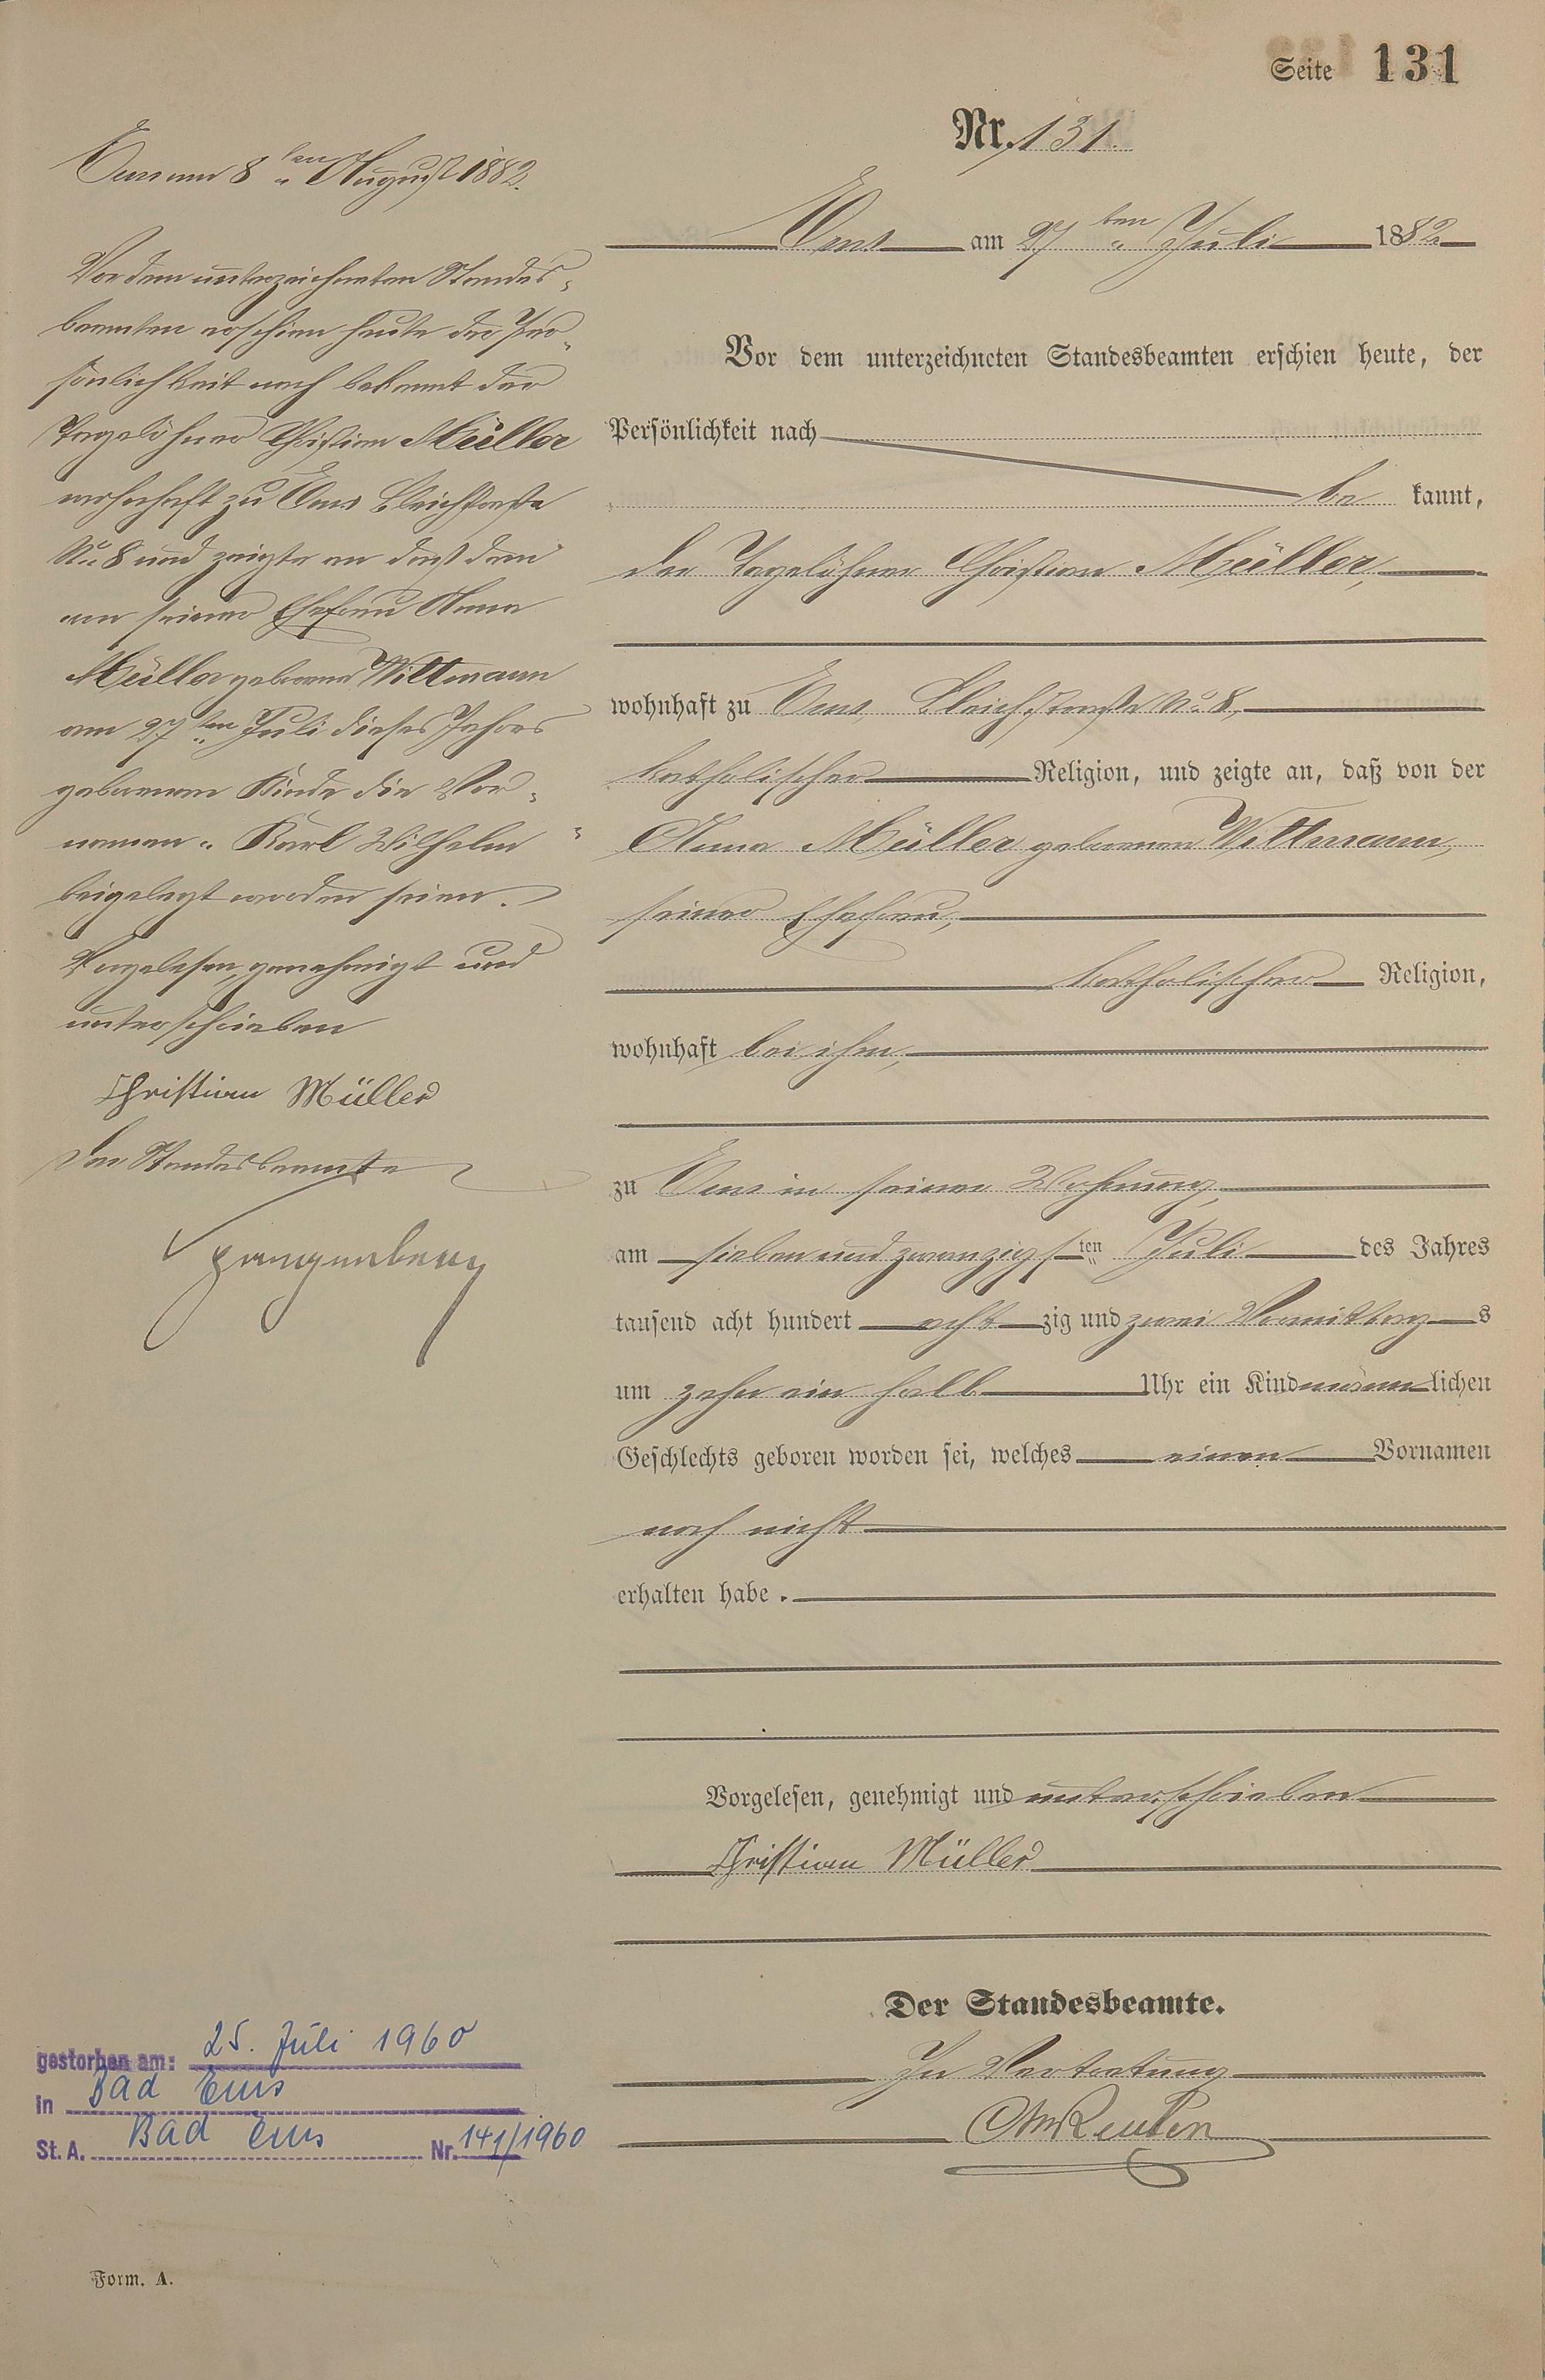 Seite 131
Nr. 131.
Ems am 27ten Juli 1882
Vor dem unterzeichneten Standesbeamten erschien heute, der
Persönlichkeit nach
be kannt,
der Tagelöhner Christian Müller,
wohnhaft zu Ems, Bleichstraße No 8,
katholischer Religion, und zeigte an, daß von der
Anna Müller geborenen Wittmann,
seiner Ehefrau,
katholischer Religion,
wohnhaft bei ihm,
zu Ems in seiner Wohnung,
am sieben und zwanzigsten Juli des Jahres
tausend acht hundert acht zig und zwei Vormittags
um zehn ein halb Uhr ein Kind männlichen
Geschlechts geboren worden sei, welches einen Vornamen
noch nicht
erhalten habe.
Vorgelesen, genehmigt und unterschrieben
Christian Müller
Der Standesbeamte.
In Vertretung
Ems am 8ten August 1882.
Vor dem unterzeichneten Standes-
beamten erschien heute der Per-
sönlichkeit nach bekannt der
Tagelöhner Christian Müller
wohnhaft zu Ems Bleichstraße
No 8 und zeigte an daß dem
von seiner Ehefrau Anna
Müller geborene Wittmann
am 27ten Juli dieses Jahres
geborenen Kinde die Vor-
namen "Karl Wilhelm"
beigelegt worden seien.
Vorgelesen, genehmigt und
unterschrieben
Christian Müller
Der Standesbeamte
Spangenberg
gestorben am: 25. Juli 1960
in Bad Ems
St. A. Bad Ems Nr. 141/1960
Form. A.